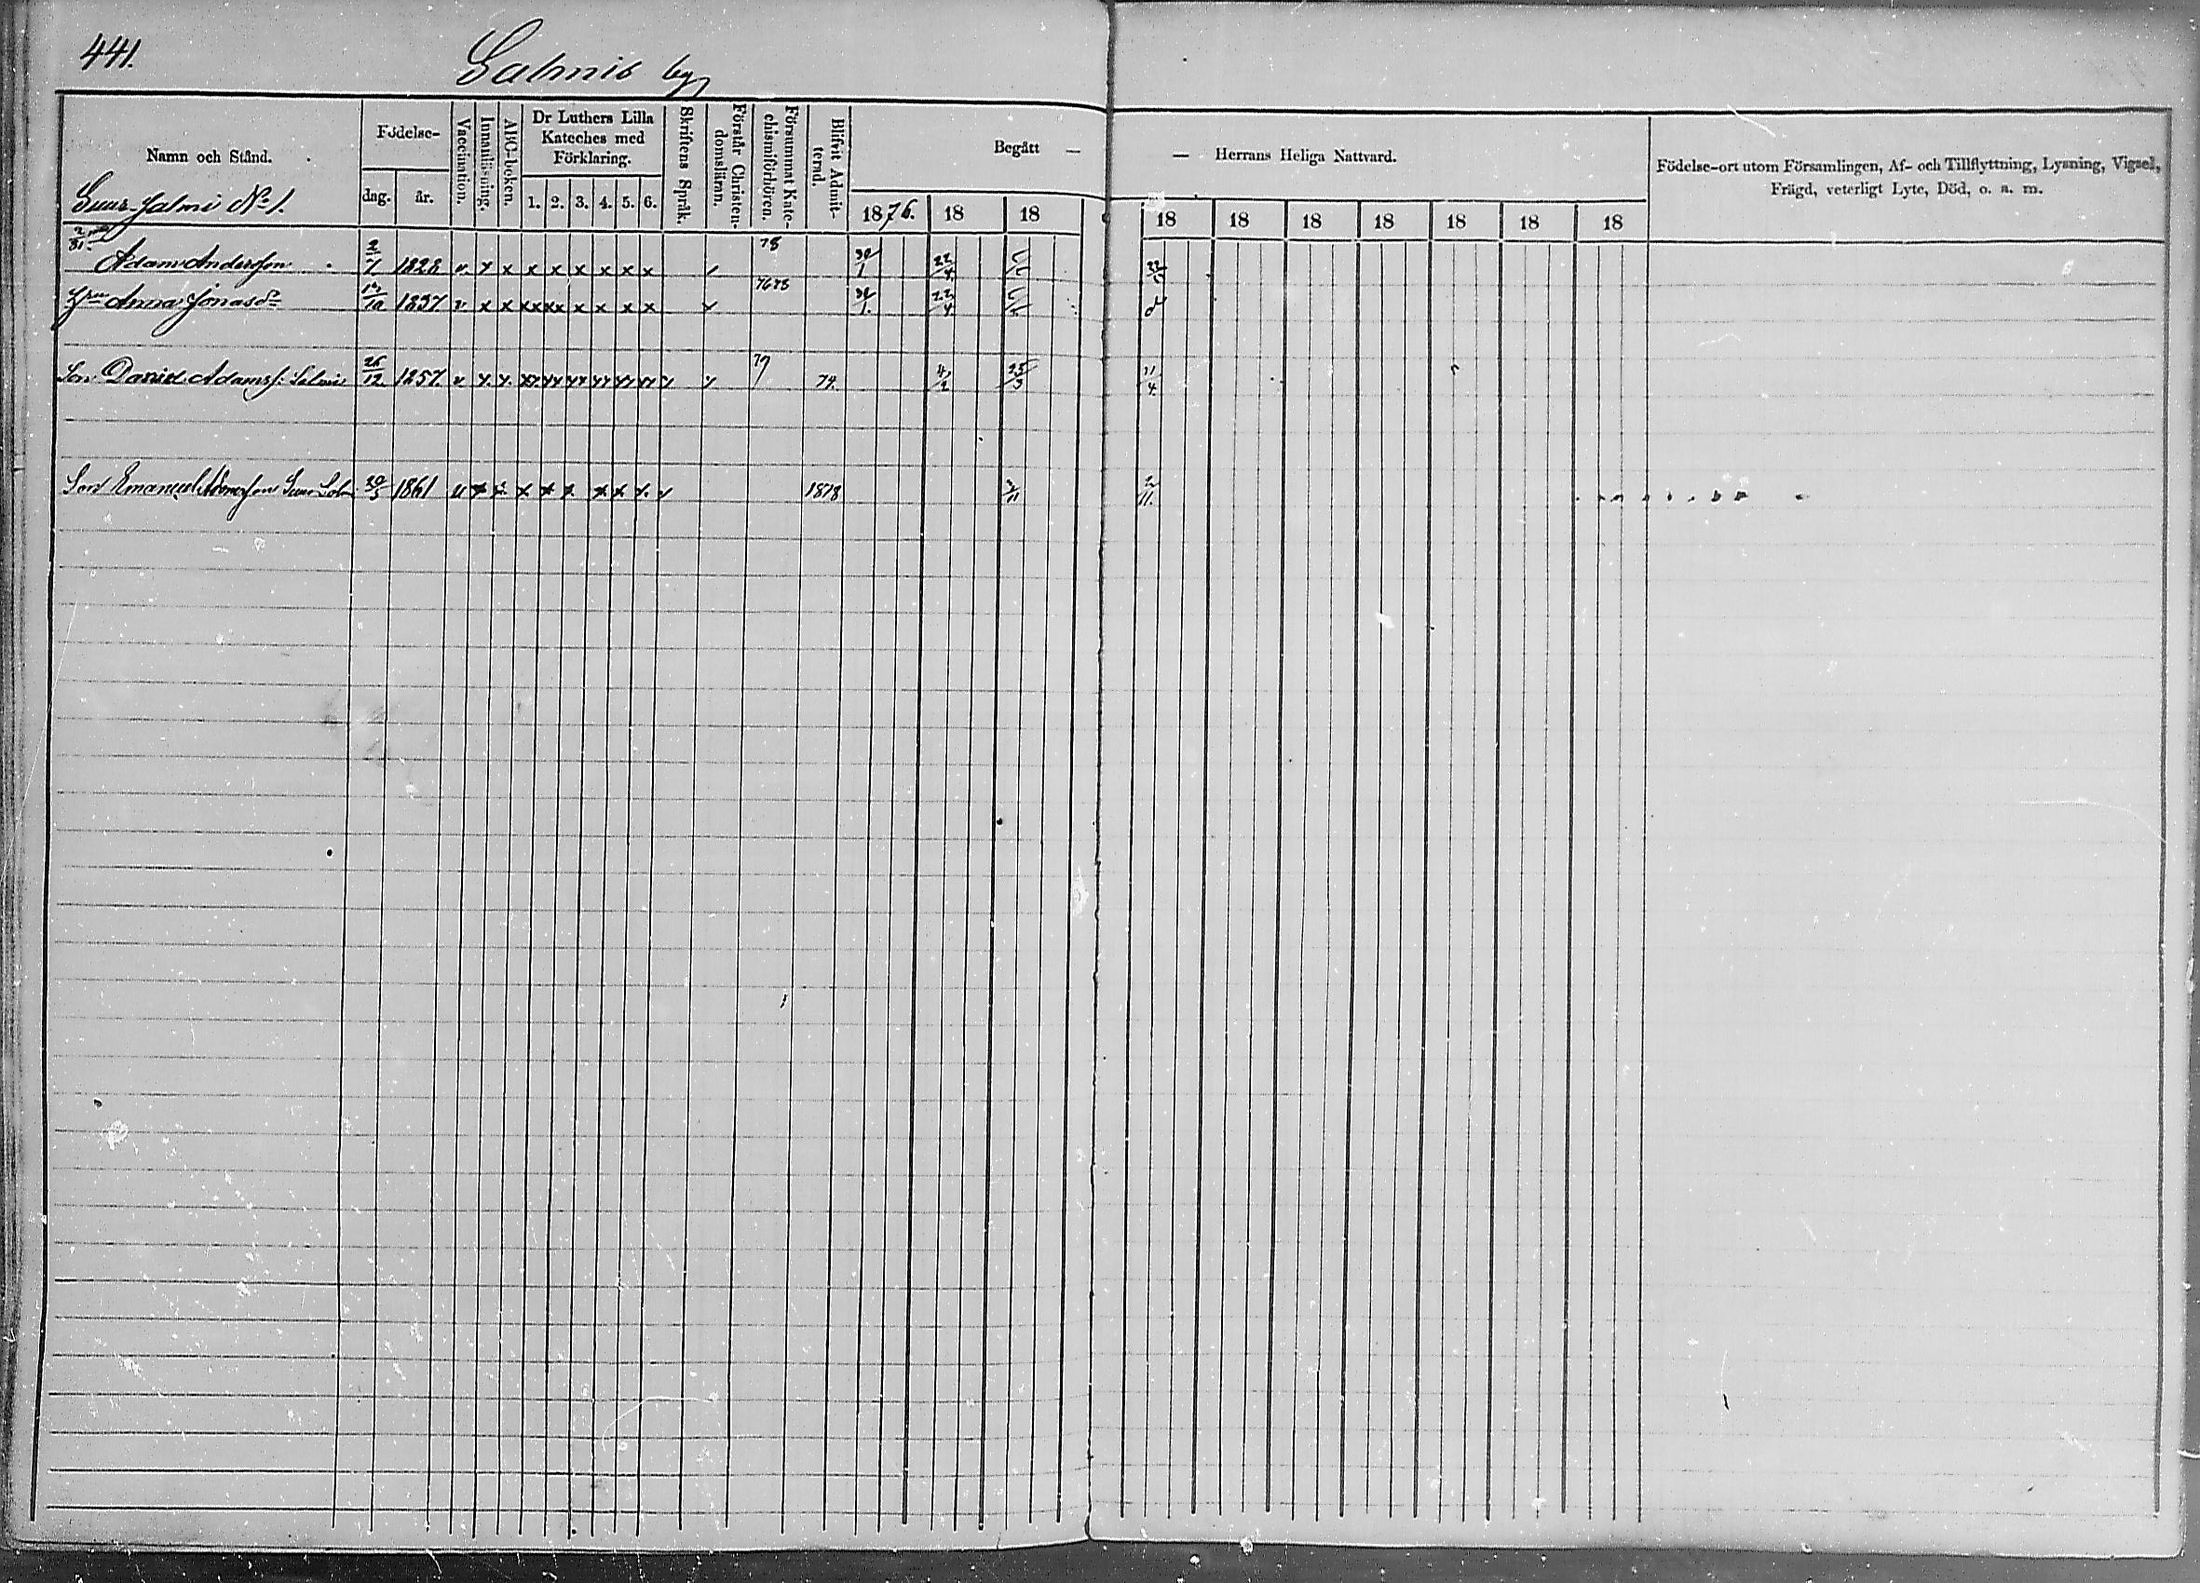 441.
Salmis by
Namn och Stånd.
Födelse-
dag. år.
Vaccination.
Innanläsning.
ABC-boken.
Dr Luthers Lilla
Kateches med
Förklaring.
1. 2. 3. 4. 5. 6.
Skriftens Språk.
Förstår Christen-
domsläran.
Försummat Kate-
chismiförhören.
Blifvit Admit-
terad.
Begått —
— Herrans Heliga Nattvard.
1876. 18 18
18 18 18 18 18 18 18
Födelse-ort utom Församlingen, Af- och Tillflyttning, Lysning, Vigsel,
Frägd, veterligt Lyte, Död, o. a. m.
Suur-Salmi No 1.
Adam Andersson 2/1 1828 v. x x x x x x x x 78 30/1 22/4
Anna Jonasdr 1837 v x x xx xx x x x x 7678 30/1. 22/4
Son David Adamss: Salmi 26/12. 1857. v x x. xx xx xx xx xx xx x x 79 74. 4/2 25/3 11/4.
Son Emanuel 20/5 1861 v x x x x x x x x x 1878 2/11 2/11.